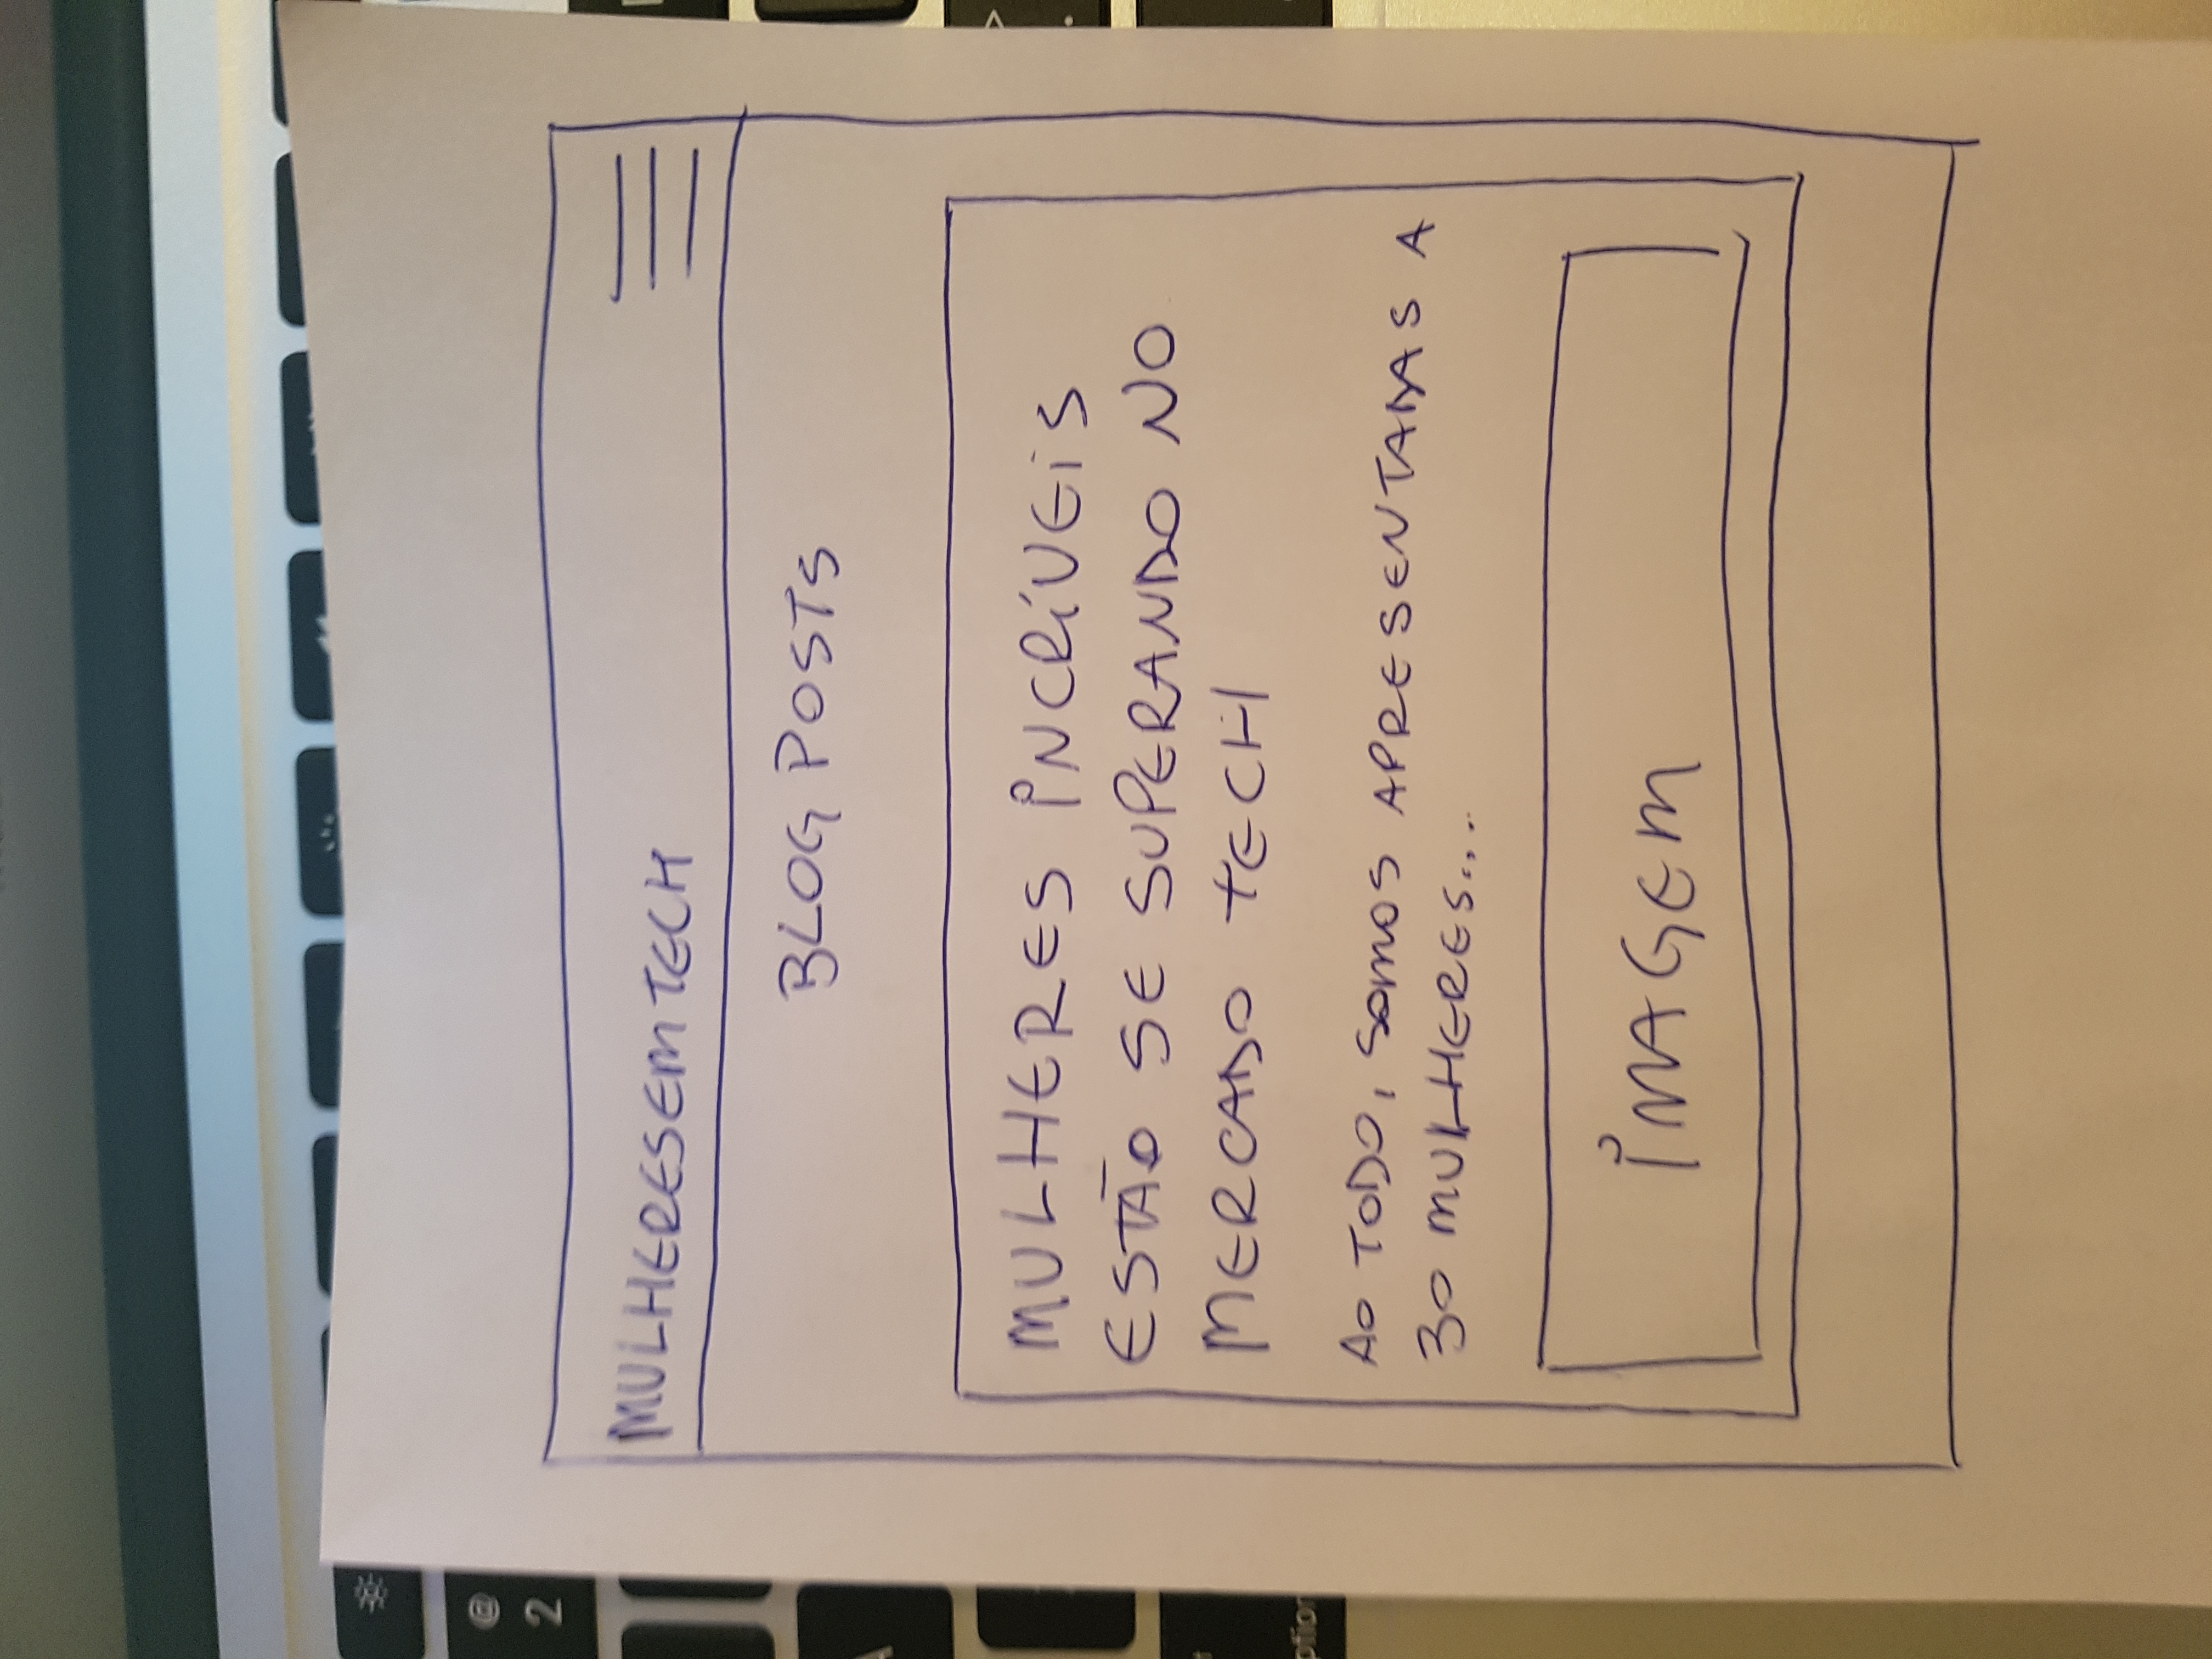 @
2
MULHERESEMTECH
BLOG POSTS
MULHERES INCRÍVEIS
ESTÃO SE SUPERANDO NO
MERCADO TECH
AO TODO, SOMOS APRESENTADAS A
30 MULHERES...
IMAGEM